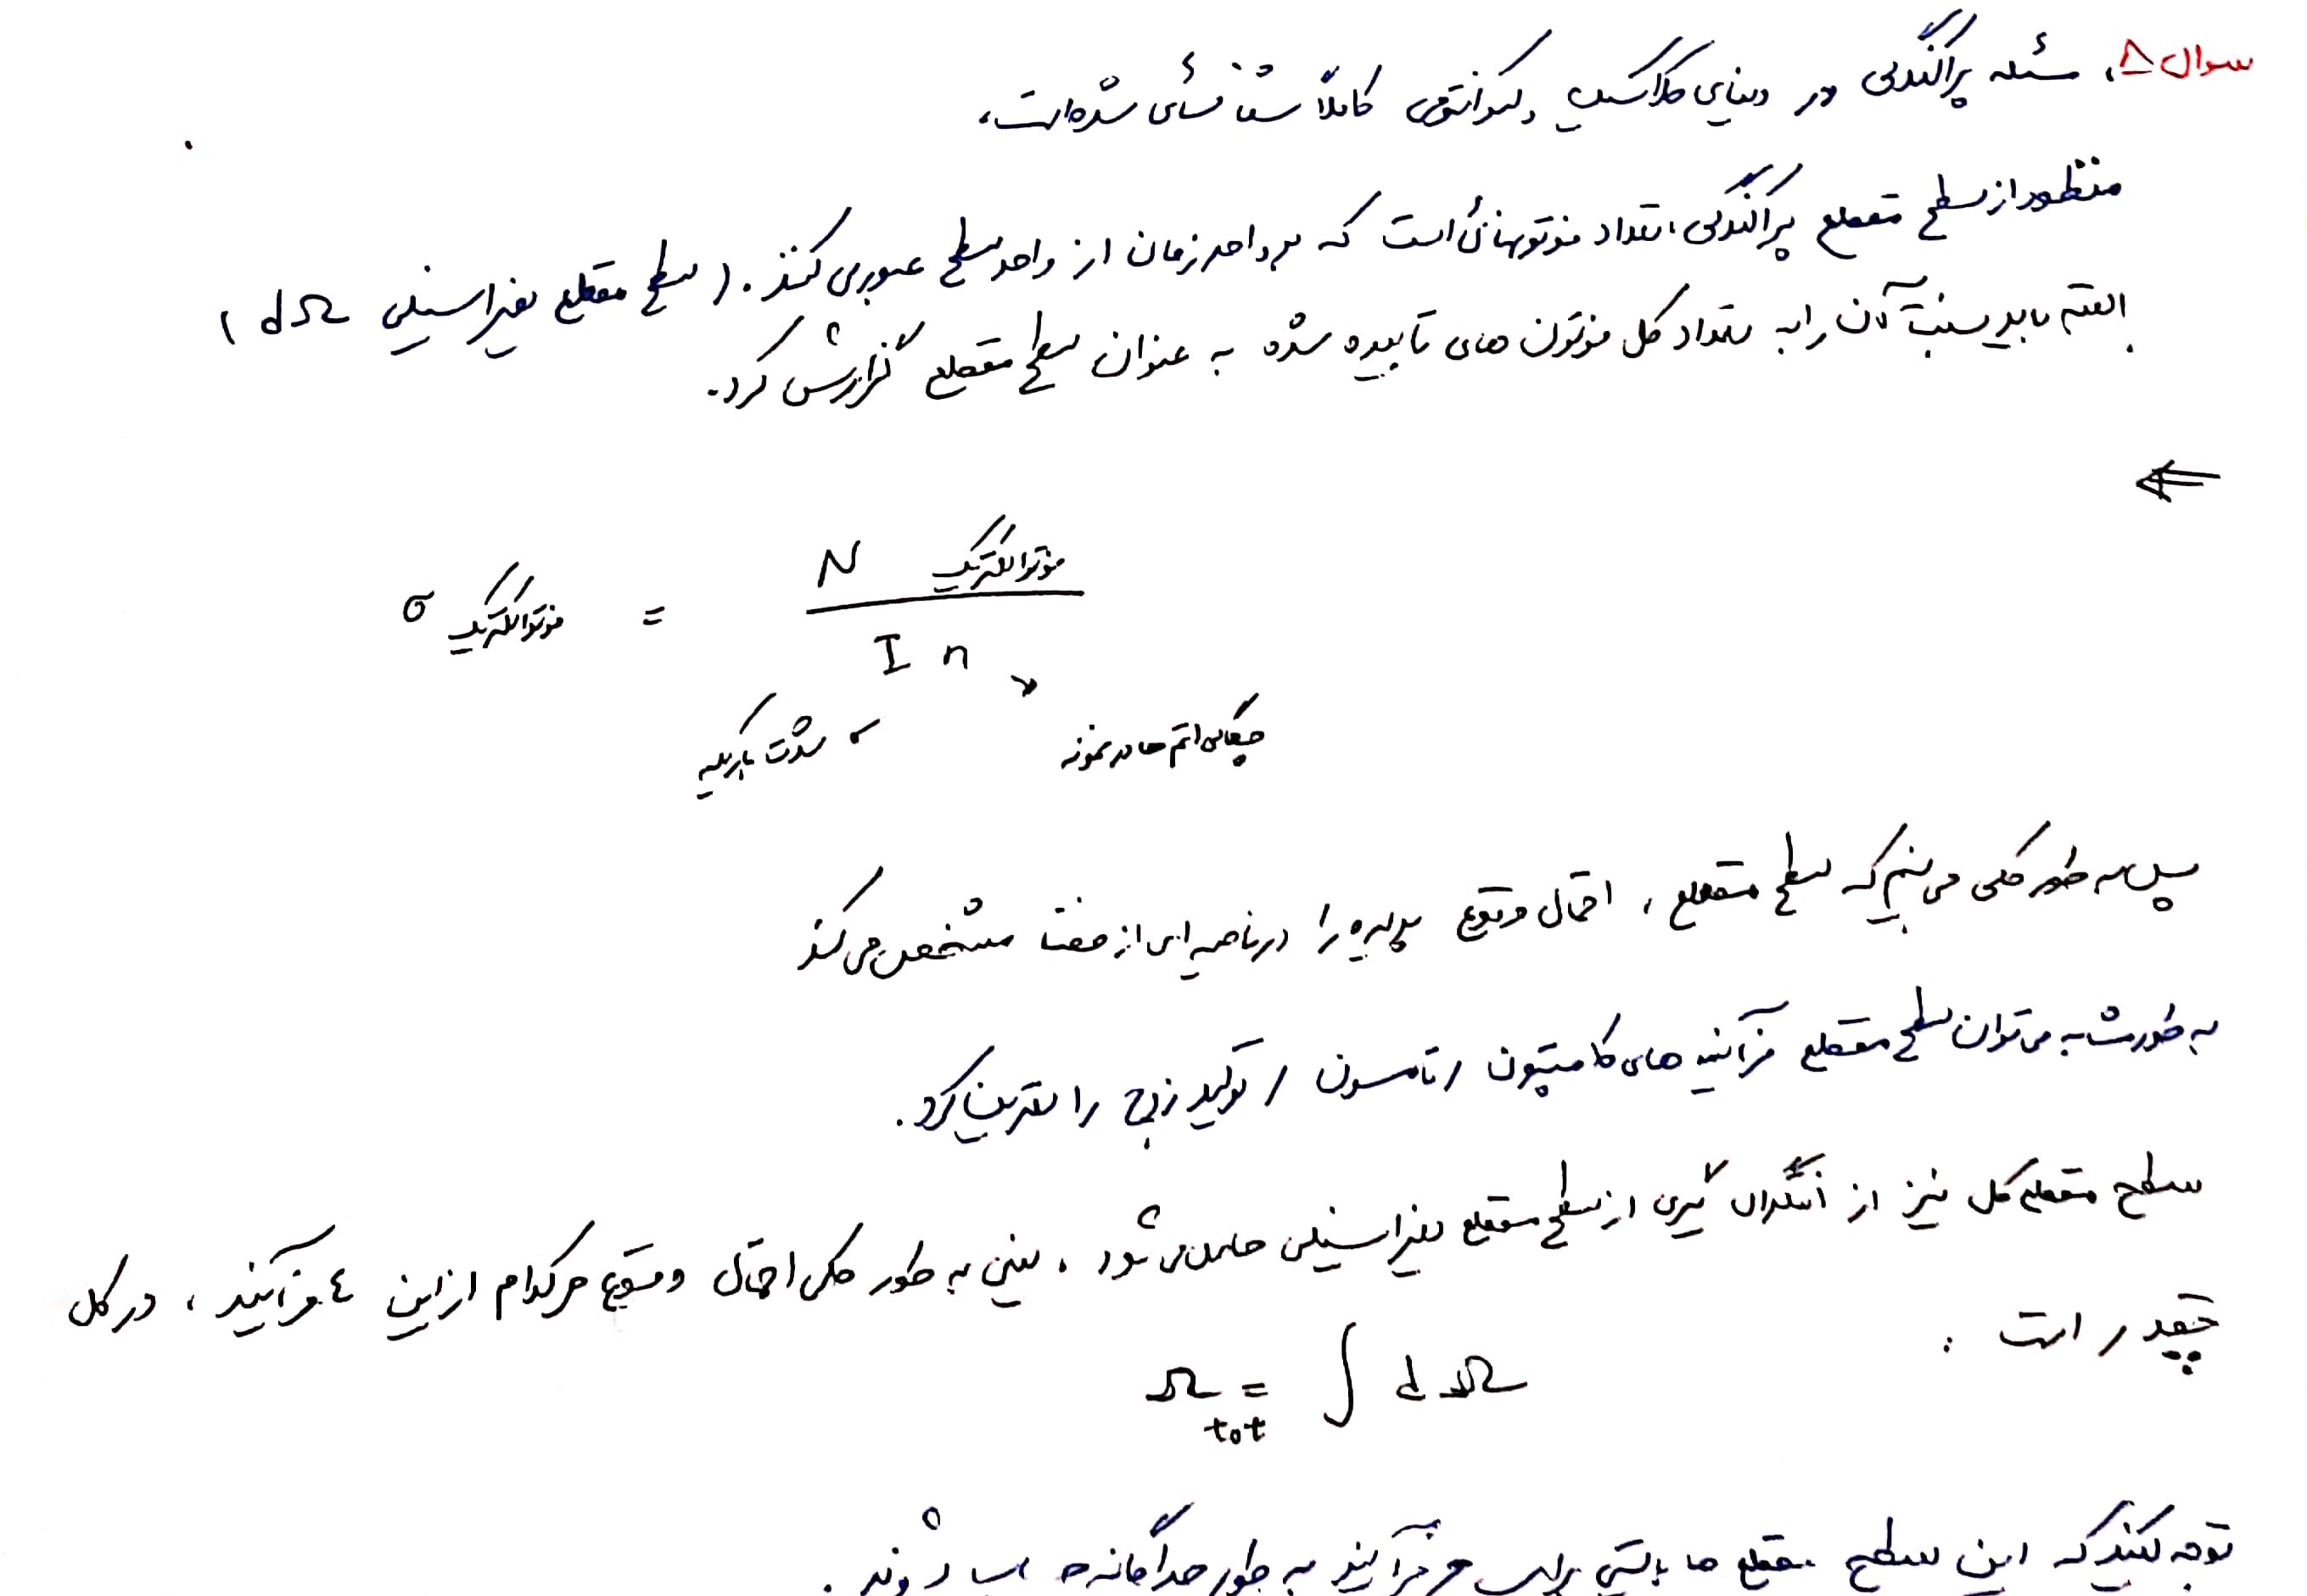 سوال ۸، مسئله پراکندگی در دنیای کلاسیک و کوانتومی کاملاً شناسائی شده است،
منظور از سطح مقطع پراکندگی، تعداد فوتونهائی است که بر واحد زمان از واحد سطح عبور می کنند. (سطح مقطع دیفرانسیلی dΩ)
البته باید نسبت آن را به تعداد کل فوتون های تابیده شده به عنوان سطح مقطع گزارش کرد.
⇐
σ فوتوالکتریک = N فوتوالکتریک / I n
شدت باریکه
چگالی اتم ها در نمونه
پس به طور کلی می بینیم که سطح مقطع، احتمال وقوع پدیده را در ناحیه ای از فضا مشخص می کند
به طور مشابه می توان سطح مقطع فرآیند های کامپتون / تامسون / تولید زوج را تعریف کرد.
سطح مقطع کل نیز از انتگرال گیری از سطح مقطع دیفرانسیلی حاصل می شود، یعنی به طور کلی احتمال وقوع هر کدام از این ٤ فرآیند، در کل
چقدر است:
Ω tot = ∫ dΩ
توجه کنید که این سطح مقطع ها بایستی برای هر فرآیند به طور جداگانه شوند.